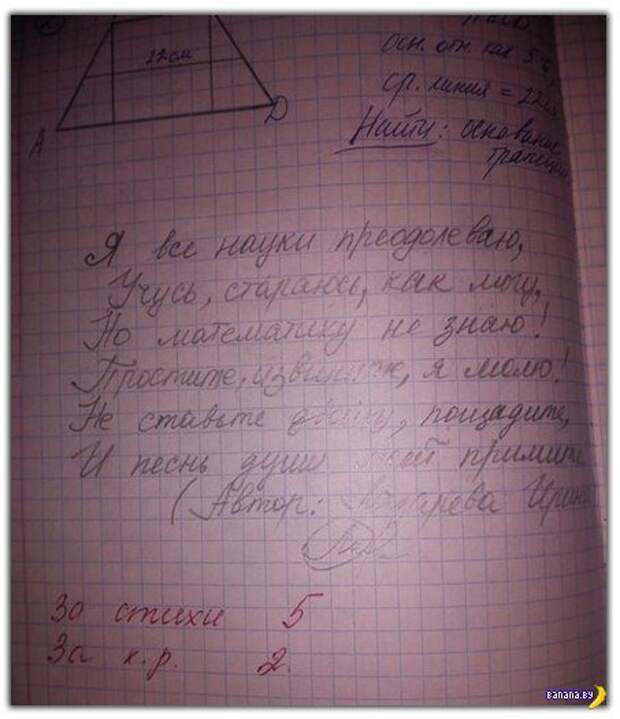 22см
A
D
осн. отн. как 5
ср. линия = 22
Найти: основания
трапеции
Я все науки преодолеваю,
Учусь, стараюсь, как могу,
Но математику не знаю!
Простите, извините, я молю!
Не ставьте двойку, пощадите,
И песнь души моей примите
(Автор: Ирина
За стихи 5
За к.р. 2.
BANANA.BY